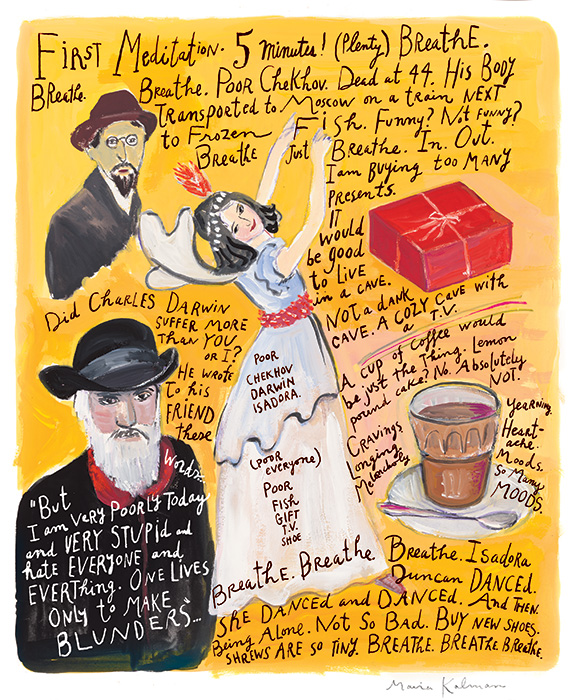 First Meditation. 5 minutes! (Plenty) BreathE.
Breathe. Breathe. Poor Chekhov. Dead at 44. His Body
Transported to Moscow on a train NEXT
to Frozen Fish. Funny? Not funny?
Breathe Just Breathe. In. Out.
I am Buying too Many
Presents.
IT
would
be good
to Live
in a cave.
NOT a dank
CAVE. A COZY CAVE with
a T.V.
A cup of Coffee would
be just the Thing. Lemon
pound cake? No. Absolutely
NOT.
Yearning.
Heart-
ache.
Moods.
So Many
MOODS.
Cravings
Longing
Melancholy
Did Charles Darwin
SUFFER MORE
Than YOU
or I?
HE WROTE
To his
FRIEND
these
words:
"But
I am very Poorly Today
and VERY STUPid and
hate EVERYONE and
EVERThing. One Lives
Only to MAKE
BLUNDERS"...
Poor
Chekhov
Darwin
Isadora.
(Poor
everyone)
Poor
Fish
Gift
T.V.
Shoe
Breathe. Breathe. Breathe. Isadora
Duncan DANCED.
She DANCED and DANCED. And Then.
Being Alone. Not So Bad. Buy new shoes.
Shrews are so tiny. Breathe. Breathe Breathe.
Maira Kalman